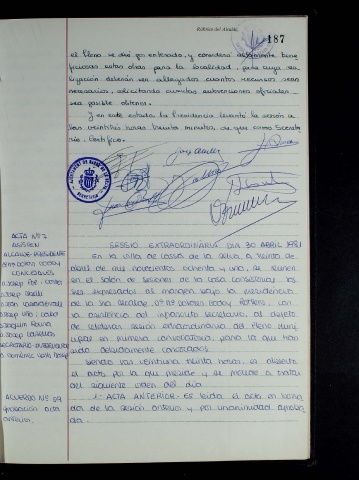 Rúbrica del Alcalde,
187
el Pleno se dió por enterado, y consideró altamente bene
ficiosas estas obras para la localidad, para cuya
ejecución deberán ser allegados cuantos recursos sean
necesarios, solicitando cuantas subvenciones oficiales
sea posible obtener.
Y en este estado la Presidencia levantó la sesión a
las veintitrés horas treinta minutos, de que como Secreta
rio. Certifico.
ACTA Nº 7
ASISTEN
ALCALDE-PRESIDENTE
CONCEJALES
SESSIÓ EXTRAORDINARIA DIA 30 ABRIL 1981
En la villa de Cassà de la Selva, a treinta de
abril de mil novecientos ochenta y uno, se reunen
en el salón de sesiones de la Casa Consistorial los
Sres. expresados al margen bajo la presidencia
de la Sra. Alcalde, con
la asistencia del infrascrito Secretario, al objeto
de celebrar sesión extraordinaria del Pleno muni
cipal en primera convocatoria, para la que han
sido debidamente convocados.
Siendo las veintiuna treinta horas, es abierto
el acto por la que preside y se procede a tratar
del siguiente orden del día
ACUERDO Nº 59
aprobación acta
anterior.
1º ACTA ANTERIOR.- Es leída el acta en borra
dor de la sesión anterior y por unanimidad aproba
da.-